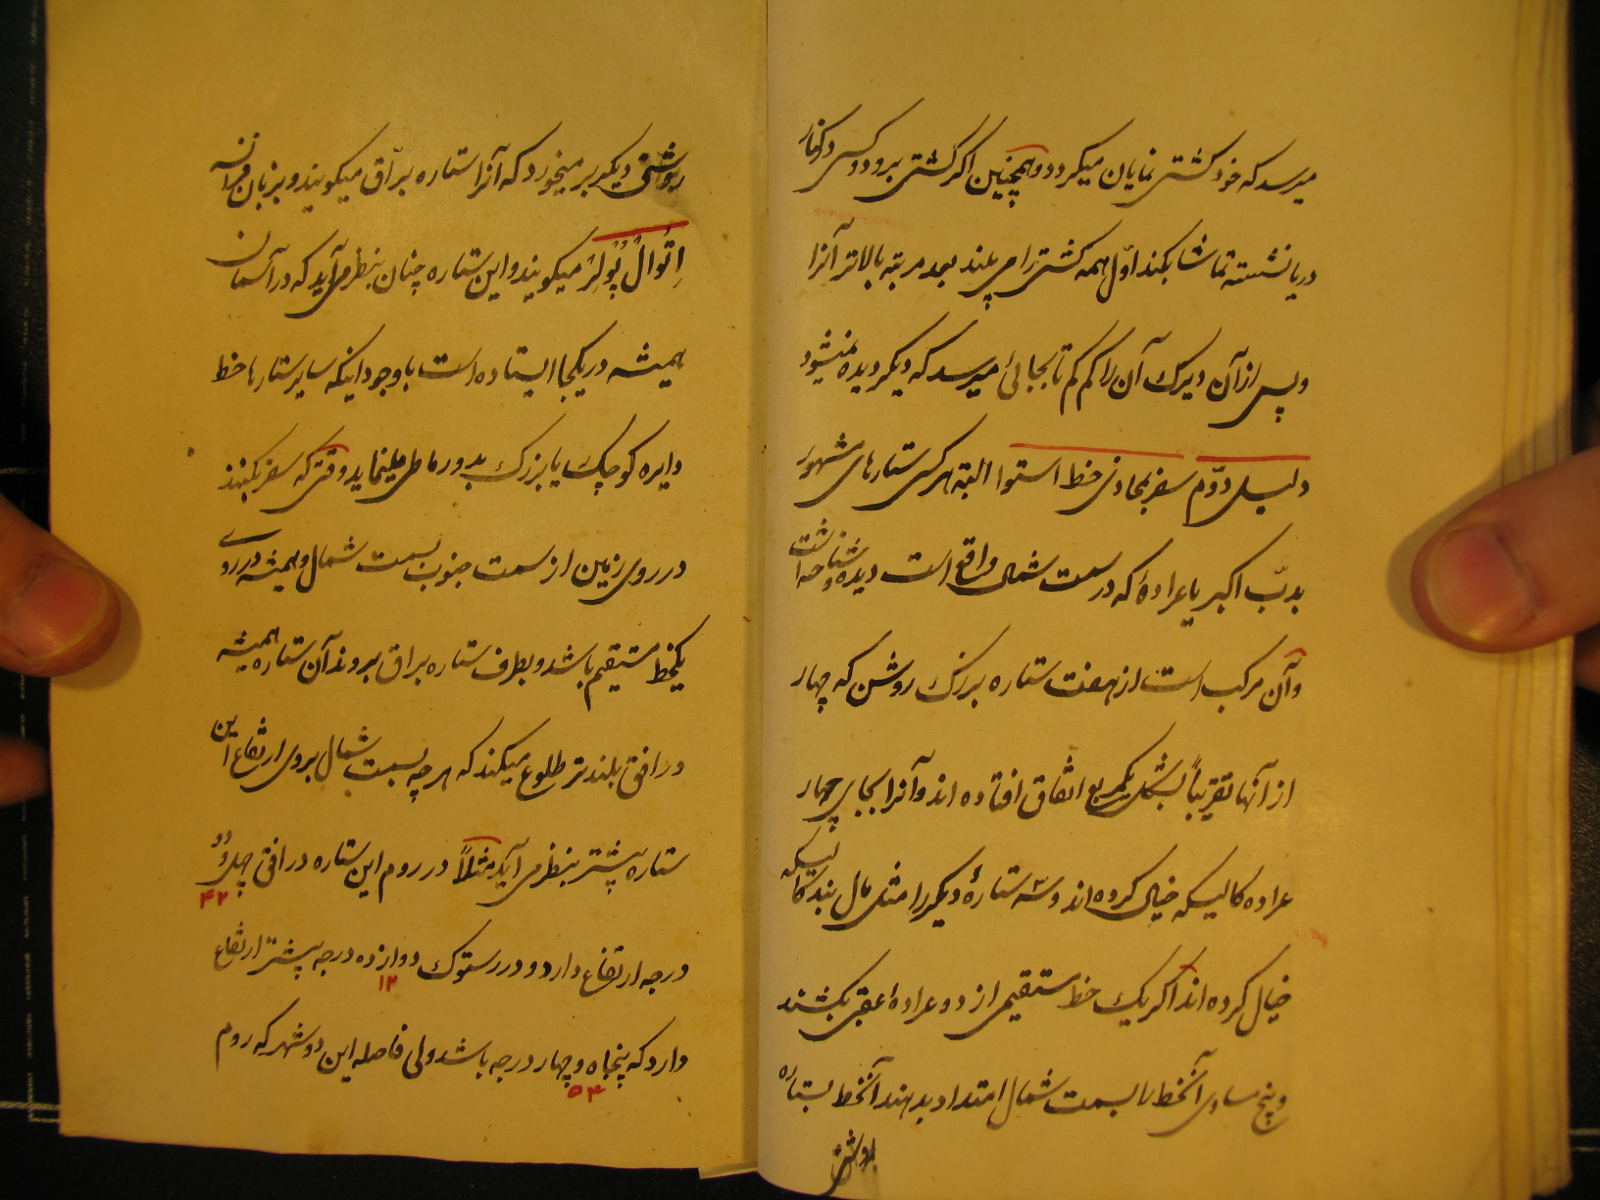 میرسد که خود کشتی نمایان میکردد و همچنین اکر کشتی برود و کسی در کنار
دریا نشسته تماشا بکند اوّل همه کشتی را می بیند بعد مرتبه بالاتر آنرا
و پس از آن دیرک آن را کم کم تا بجائی میرسد که دیکر دیده نمیشود
دلیل دوّم سفر بمحاذی خط استوا البته هر کسی ستارهای مشهور
بدبّ اکبر یا عرادهٔ که در سمت شمال واقع است دیده و شناخته است
و آن مرکب است از هفت ستاره بزرک روشن که چهار
از آنها تقریباً بشکل یکمربع اتفاق افتاده اند و آنرا بجای چهار
عراده کالیسکه خیال کرده اند و سه ستارهٔ دیکر را مثل مال بند کالیسکه
خیال کرده اند اکر یک خط مستقیمی از دو عرادهٔ عقبی بکشند
و پنج مساوی آنخط را بسمت شمال امتداد بدهند آنخط بستاره
روشنی
روشنی دیکر بر میخورد که آنرا ستاره برّاق میکویند و بزبان فرانسه
اِتُوالُ پُولِرْ میکویند و این ستاره چنان بنظر می آید که در آسمان
همیشه در یکجا ایستاده است با وجود اینکه سایر ستارها خط
دایره کوچک یا بزرک بدور ما طی مینماید وقتی که سفر بکنند
در روی زمین از سمت جنوب بسمت شمال و همیشه در روی
یکخط مستقیم باشد و بطرف ستاره براق بروند آن ستاره همیشه
در افق بلندتر طلوع میکند که هر چه بسمت شمال بروی ارتفاع این
ستاره بیشتر بنظر می آید مثلاً در روم این ستاره در افق چهل و دو
۴۲
درجه ارتفاع دارد و در رستوک دوازده درجه بیشتر ارتفاع
۱۲
دارد که پنجاه و چهار درجه باشد ولی فاصله این دو شهر که روم
۵۴